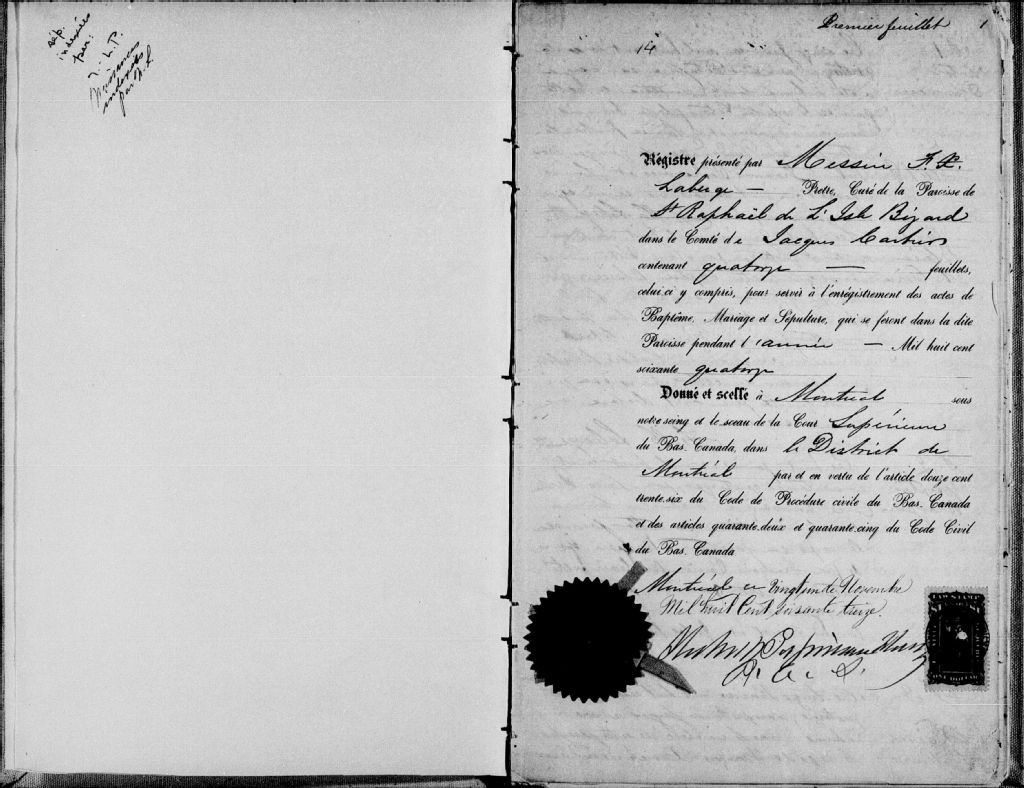 Sép.
indexées
par:
J.-L.P.
Naissances
indexées
par J.L.
Premier feuillet 1
14
Régistre présenté par Messire F. X.
Laberge — Prêtre, Curé de la Paroisse de
St Raphaël de L'Isle Bizard
dans le Comté de Jacques Cartier
contenant quatorze — feuillets,
celui-ci y compris, pour servir à l'enrégistrement des actes de
Baptême, Mariage et Sépulture, qui se feront dans la dite
Paroisse pendant l'année — Mil huit cent
soixante quatorze
Donné et scellé à Montréal sous
notre seing et le sceau de la Cour Supérieure
du Bas-Canada, dans le District de
Montréal par et en vertu de l'article douze cent
trente-six du Code de Procédure civile du Bas-Canada
et des articles quarante-deux et quarante-cinq du Code Civil
du Bas-Canada
Montréal ce vingt un de Novembre
Mil huit Cent soixante treize.
LAW STAMP
ONE DOLLAR